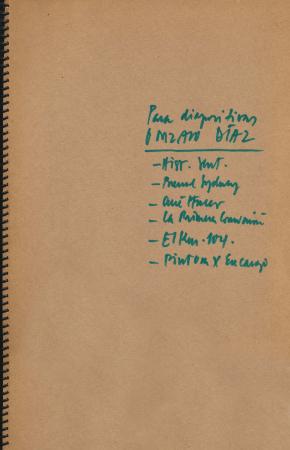 Para diapositivas
GONZALO DÍAZ
- Hist. Sent.
- Biennal Sydney
- Qué Hacer
- La Primera Comunión
- El Km. 104.
- Pintura x Encargo